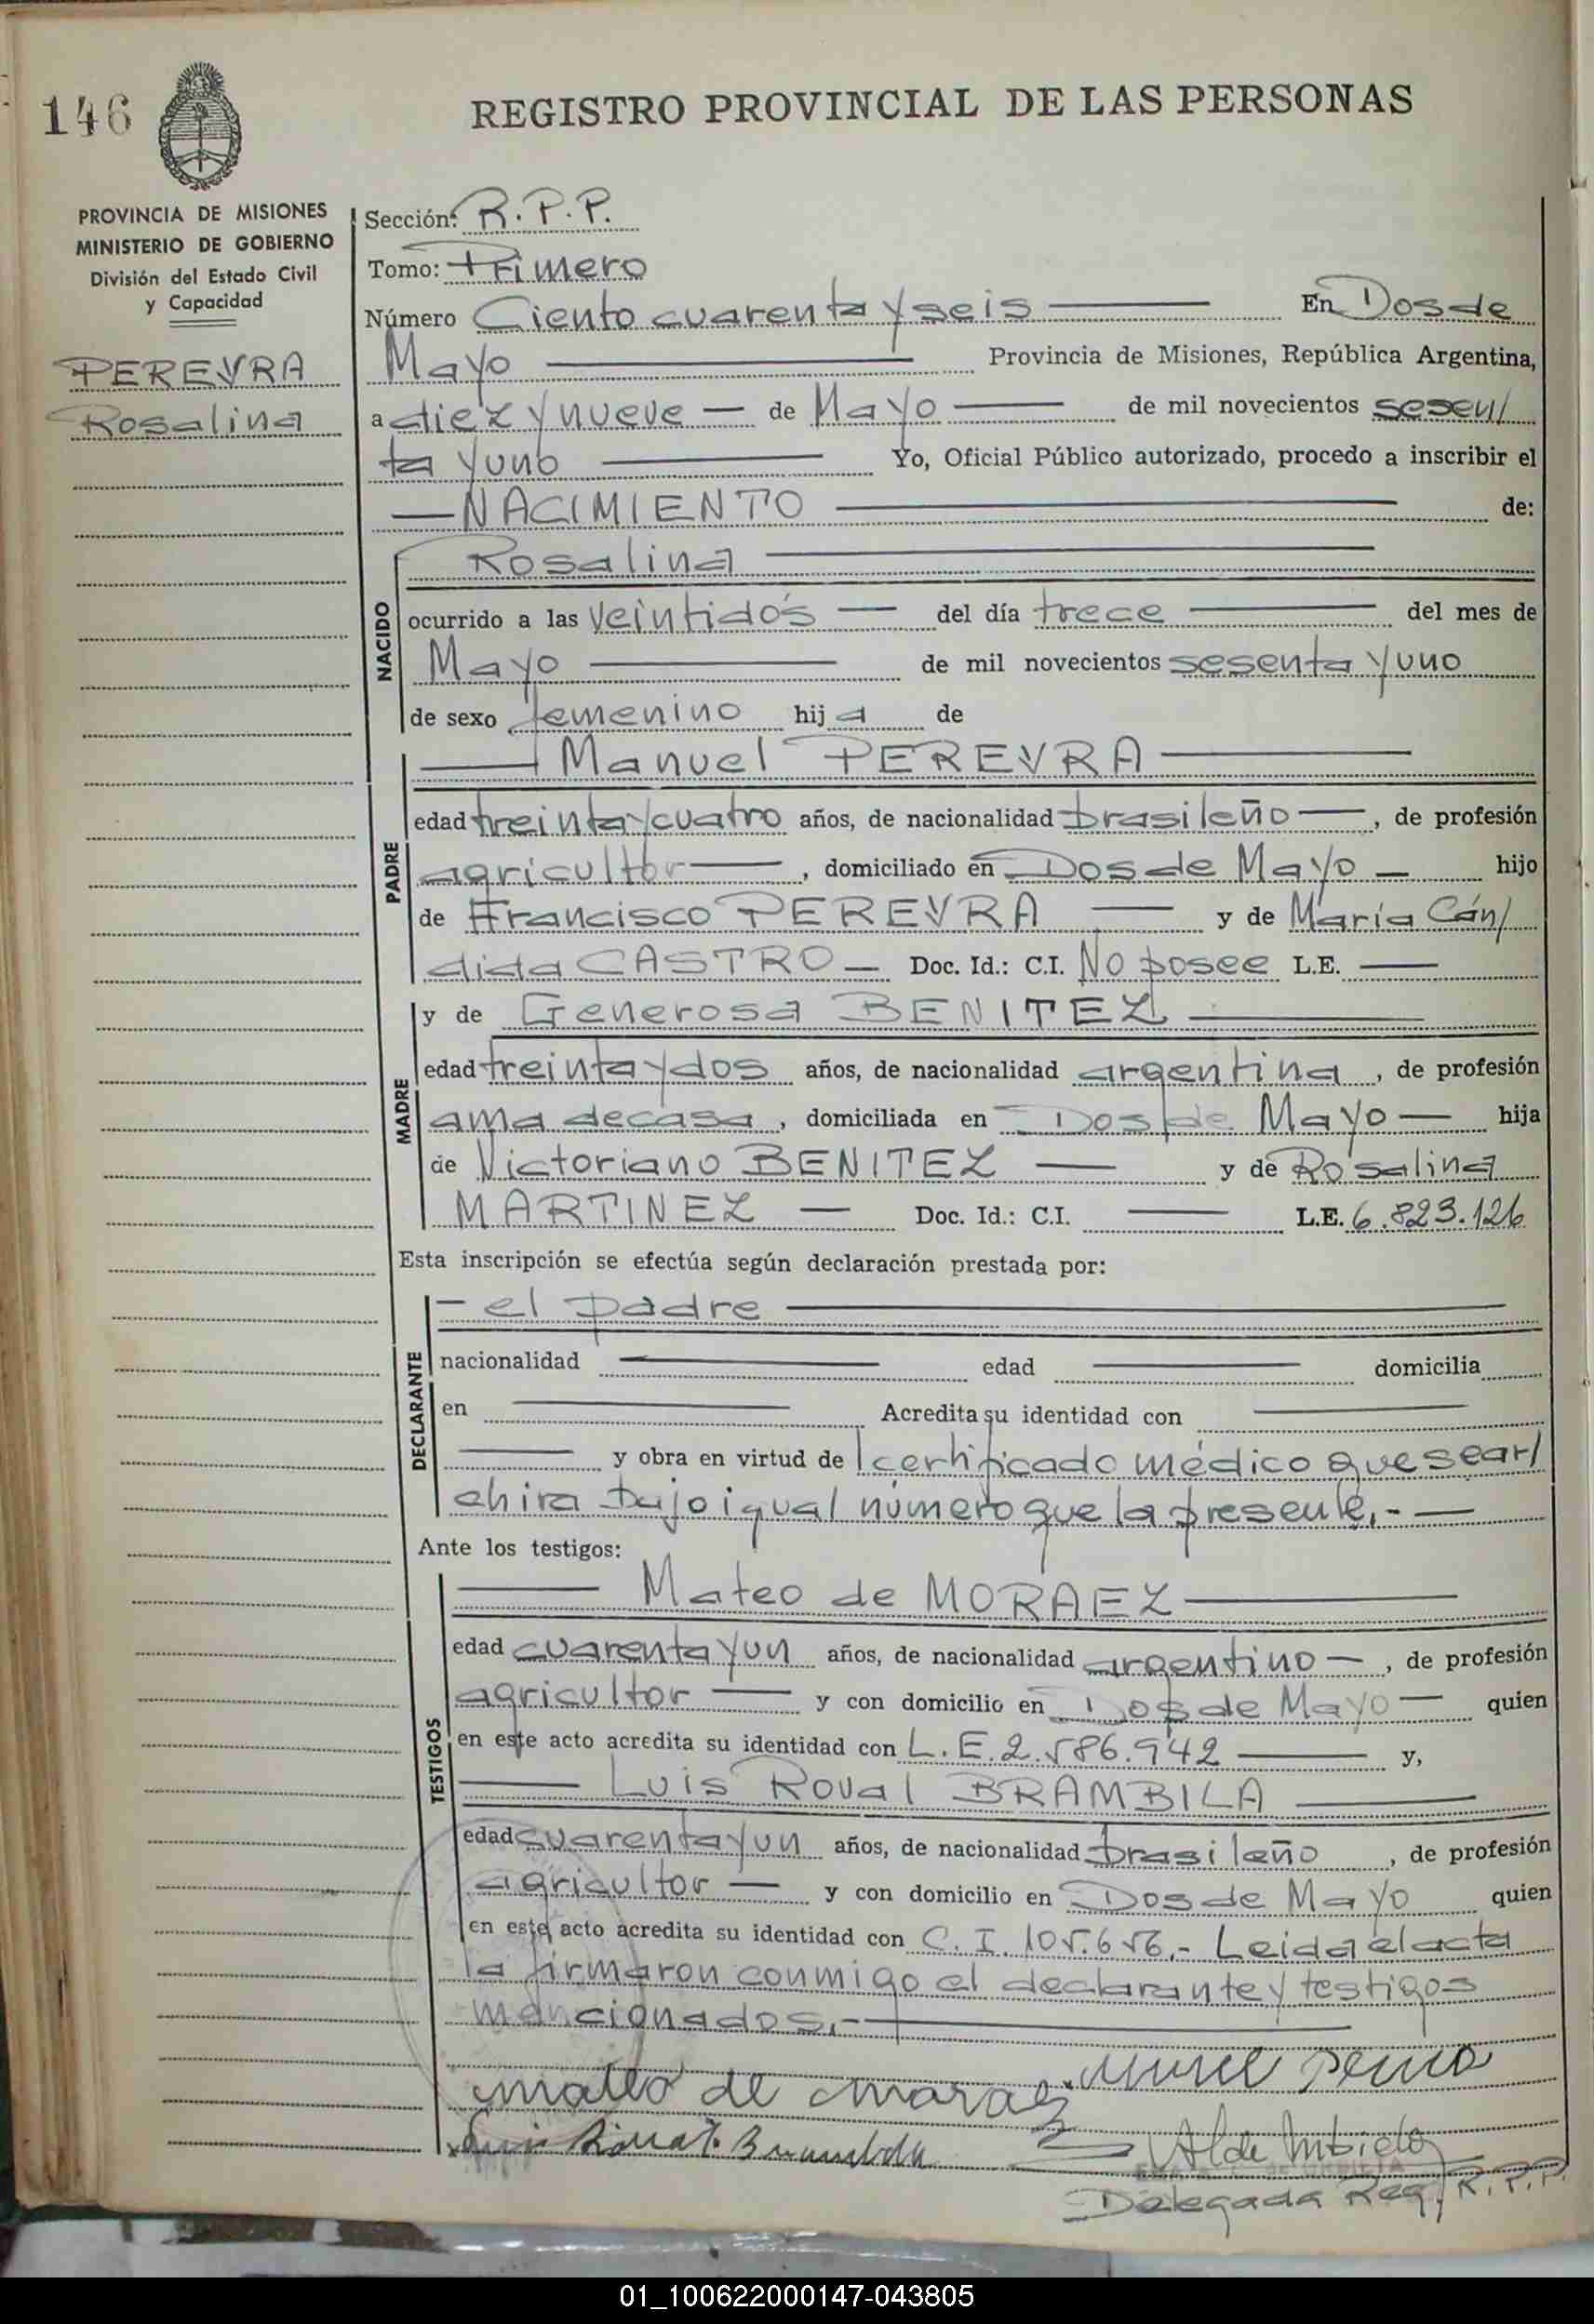 146
REGISTRO PROVINCIAL DE LAS PERSONAS
PROVINCIA DE MISIONES
MINISTERIO DE GOBIERNO
División del Estado Civil
y Capacidad
PEREYRA
Rosalina
Sección: R.P.P.
Tomo: Primero
Número Ciento cuarenta y seis — En Dos de
Mayo — Provincia de Misiones, República Argentina,
a diez y nueve — de Mayo — de mil novecientos sesen/
ta y uno — Yo, Oficial Público autorizado, procedo a inscribir el
— NACIMIENTO — de:
NACIDO
Rosalina —
ocurrido a las veintidós — del día trece — del mes de
Mayo — de mil novecientos sesenta y uno
de sexo femenino hij a de
PADRE
— Manuel PEREYRA —
edad treinta y cuatro años, de nacionalidad brasileño —, de profesión
agricultor —, domiciliado en Dos de Mayo — hijo
de Francisco PEREYRA — y de María Cán/
dida CASTRO — Doc. Id.: C.I. No posee L.E. —
MADRE
y de Generosa BENITEZ —
edad treinta y dos años, de nacionalidad argentina, de profesión
ama de casa, domiciliada en Dos de Mayo — hija
de Victoriano BENITEZ — y de Rosalina
MARTINEZ — Doc. Id.: C.I. — L.E. 6.823.126
Esta inscripción se efectúa según declaración prestada por:
DECLARANTE
— el padre —
nacionalidad — edad — domicilia
en — Acredita su identidad con —
— y obra en virtud de l certificado médico que se ar/
chiva bajo igual número que la presente.- —
Ante los testigos:
TESTIGOS
— Mateo de MORAEZ —
edad cuarenta y un años, de nacionalidad argentino —, de profesión
agricultor — y con domicilio en Dos de Mayo — quien
en este acto acredita su identidad con L.E. 2.586.942 — y,
— Luis Roval BRAMBILA —
edad cuarenta y un años, de nacionalidad brasileño, de profesión
agricultor — y con domicilio en Dos de Mayo quien
en este acto acredita su identidad con C.I. 105.656.- Leida el acta
la firmaron conmigo el declarante y testigos
mencionados.- —
mateo de moraez
Delegada Reg. R.P.P.
01_100622000147-043805